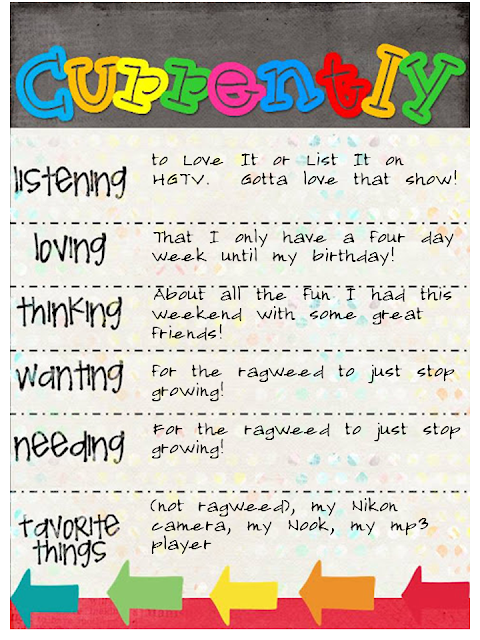 Currently
listening
to Love It or List It on
HGTV. Gotta love that show!
loving
That I only have a four day
week until my birthday!
thinking
About all the fun I had this
weekend with some great
friends!
wanting
For the ragweed to just stop
growing!
needing
For the ragweed to just stop
growing!
favorite
things
(not ragweed), my Nikon
camera, my Nook, my mp3
player